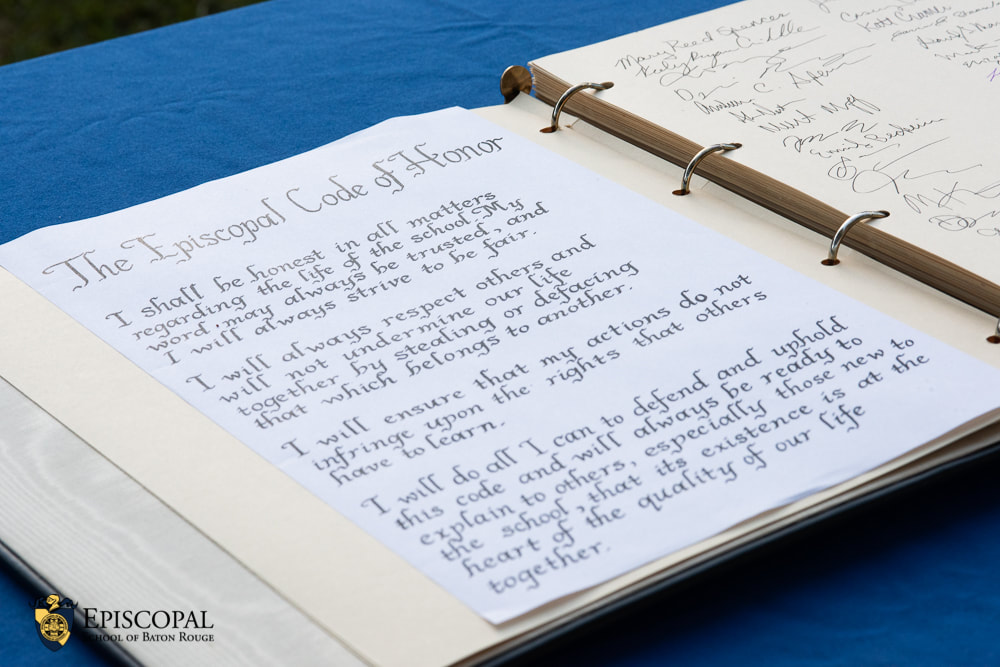 The Episcopal Code of Honor
I shall be honest in all matters
regarding the life of the school. My
word, may always be trusted, and
I will always strive to be fair.
I will always respect others and
will not undermine our life
together by stealing or defacing
that which belongs to another.
I will ensure that my actions do not
infringe upon the rights that others
have to learn.
I will do all I can to defend and uphold
this code and will always be ready to
explain to others, especially those new to
the school, that its existence is at the
heart of the quality of our life
together.
Mary Reed Spencer
EPISCOPAL
SCHOOL OF BATON ROUGE